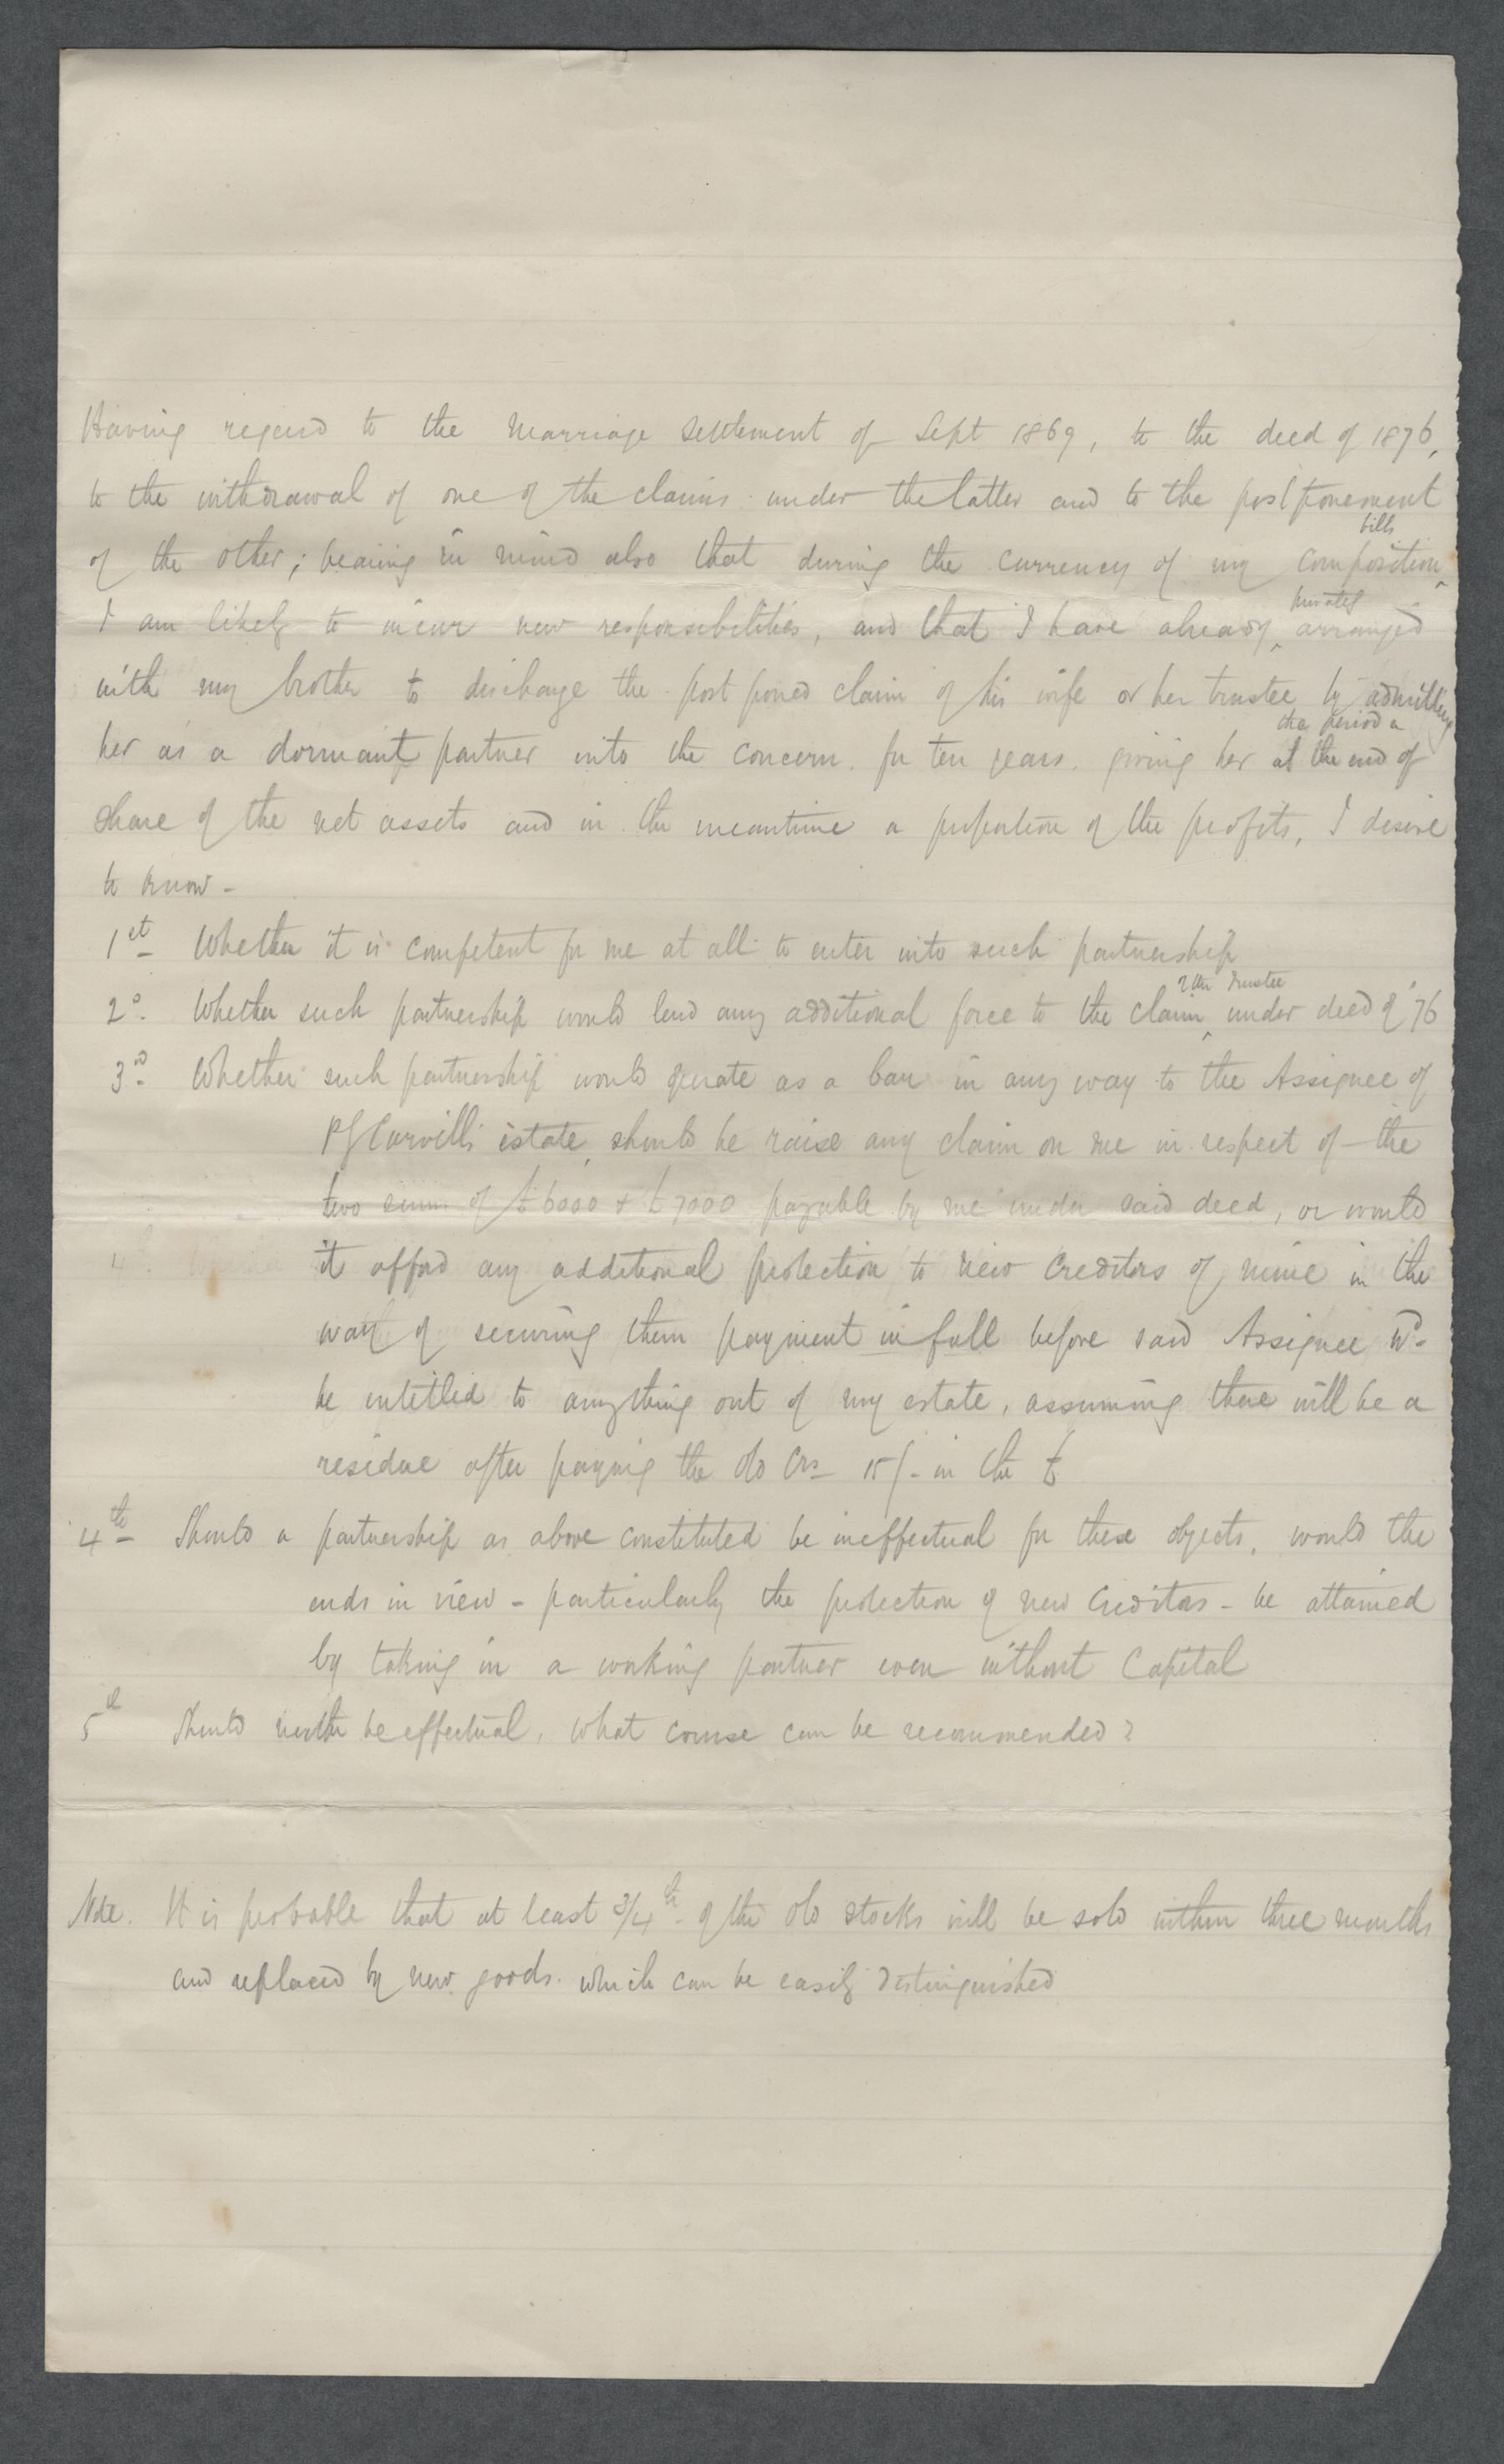 Having regard to the Marriage Settlement of Sept 1869, to the deed of 1876,
to the withdrawal of one of the claims under the latter and to the postponement
bills
of the other; bearing in mind also that during the currency of my composition
privately
I am likely to incur new responsibilities, and that I have already arranged
with my brother to discharge the postponed claim of his wife or her trustee by admitting
the period a
her as a dormant partner into the concern for ten years. giving her at the end of
share of the net assets and in the meantime a proportion of the profits, I desire
to know -
1st Whether it is competent for me at all to enter into such partnership
Trustee
2o. Whether such partnership would lend any additional force to the claim under deed of '76
3d. Whether such partnership would operate as a bar in any way to the Assignee of
P J Carvill's estate, should he raise any claim on me in respect of the
two sums of £6000 & £7000 payable by me under said deed, or would
it afford any additional protection to new creditors of mine in the
way of securing them payment in full before said Assignee wd.
be intitled to anything out of my estate, assuming there will be a
residue after paying the old Crs 15/- in the £
4th Should a partnership as above constituted be ineffectual for these objects, would the
ends in view - particularly the protection of new Creditors - be attained
by taking in a working partner even without Capital
5th Should neither be effectual, what course can be recommended?
Note. It is probable that at least 3/4th of the old stocks will be sold within three months
and replaced by new goods. which can be easily distinguished